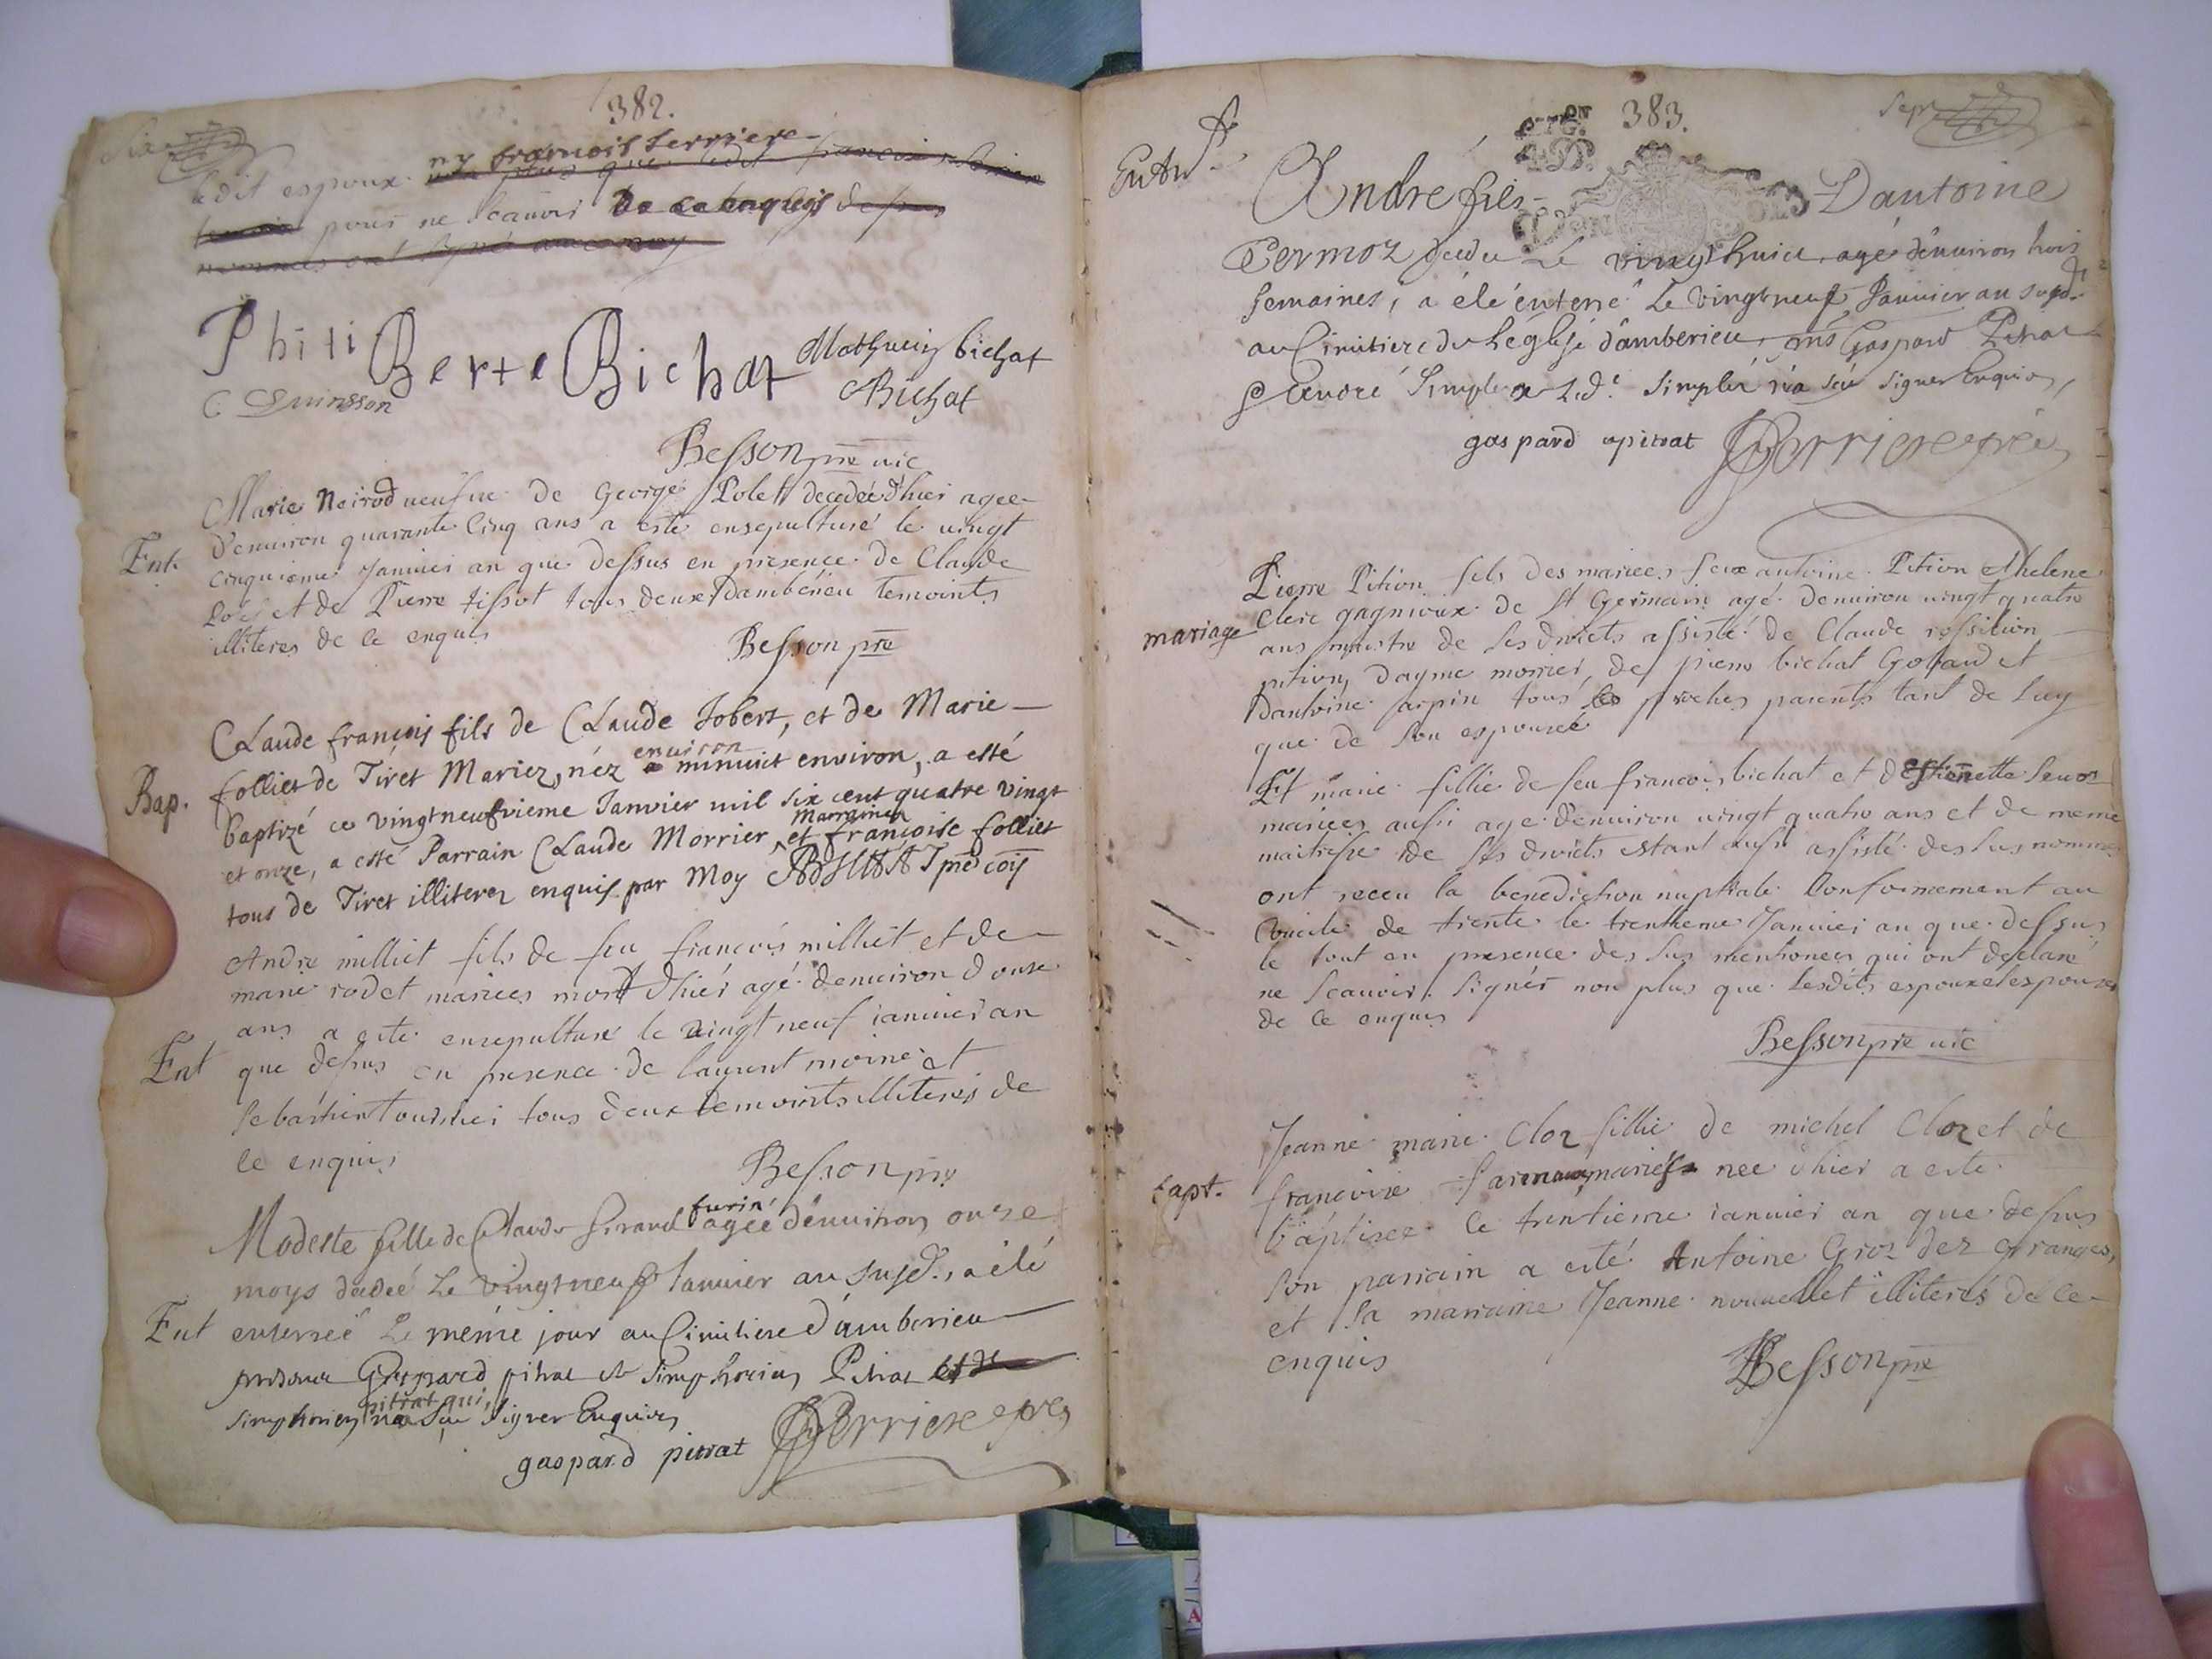 382.
ny francois serriere
ledit espoux
pour ne scauoir de ce enquis
Phili Berte Bichat Mathieu bichat
C Guinsson Bichat
Besson pre vic
Marie Neirod veufue de George Polet decedée d'hier agee
Ent.
d'enuiron quarante cinq ans a esté ensepulturé le vingt
cinquieme Januier an que dessus en presence de Claude
et de Pierre tissot tous deux d'amberieu temoints
illiteres de ce enquis
Besson pre
CLaude françois fils de CLaude Jobert, et de Marie
folliet de Tiret Mariez, néz environ minuict environ, a esté
Bap.
baptizé ce vingtneufvieme Janvier mil six cent quatre vingt
et onze, a esté Parrain CLaude Morrier, et Marraine françoise folliet
tous de Tiret illiterez enquis par Moy
Andre milliet fils de feu francois milliet et de
marie rodet mariees mort d'hier agé denuiron douse
ans a esté ensepulture le vingt neuf ianuier an
Ent
que dessus en presence de laurent moine et
sebastien tous deux temoints illiteres de
ce enquis
Besson pre
Modeste fille de Claude Girard furin agée d'enuiron onze
moys décédé Le vingtneuf Januier an susd., a élé
Ent
enterreé Le méme jour au Cimitiere d'amberieu
Gaspard pitrat et Simphorien Pitrat
simphorien pitrat qui n'a sçu signer Enquis
gaspard pitrat
383.
Sept
Entr
André fils D'antoine
Permoz Le vingthuict, agé d'enuiron trois
semaines, a élé enterré Le vingtneuf Januier an susd.
au Cimitiere de Leglise d'amberieu, Gaspard Pitrat
André Simple Led. Simple n'a sçu signer Enquis,
gaspard pitrat
Pierre Pition fils des mariees feux antoine Pition et helene
Clerc gagnioux de St Germain agé denuiron vingt quatre
mariage
ans maistre de ses droicts assisté de Claude
pition, dayme morier, de pierre bichat Goland et
dantoine arpin tous proches parents tant de luy
que de son espousee
Et marie fillie de feu francois bichat et destienette
mariees aussi agé denuiron vingt quatre ans et de meme
maitrise de ses droicts estant aussi assisté des sus nommes
ont receu la benediction nuptiale Conformement au
Concile de trente le trentieme Januier an que dessus
le tout en presence des sus mentionees qui ont declaré
ne scauoir signér non plus que lesdits espoux et espouse
de ce enquis
Besson pre vic
Jeanne marie Cloz fillie de michel Cloz et de
francoise mariés nee d'hier a esté
bapt.
baptisee le trentieme ianuier an que dessus
son parrain a esté Antoine Groz dez granges,
et sa marraine Jeanne nouuellet illiterés de ce
enquis
Besson pre